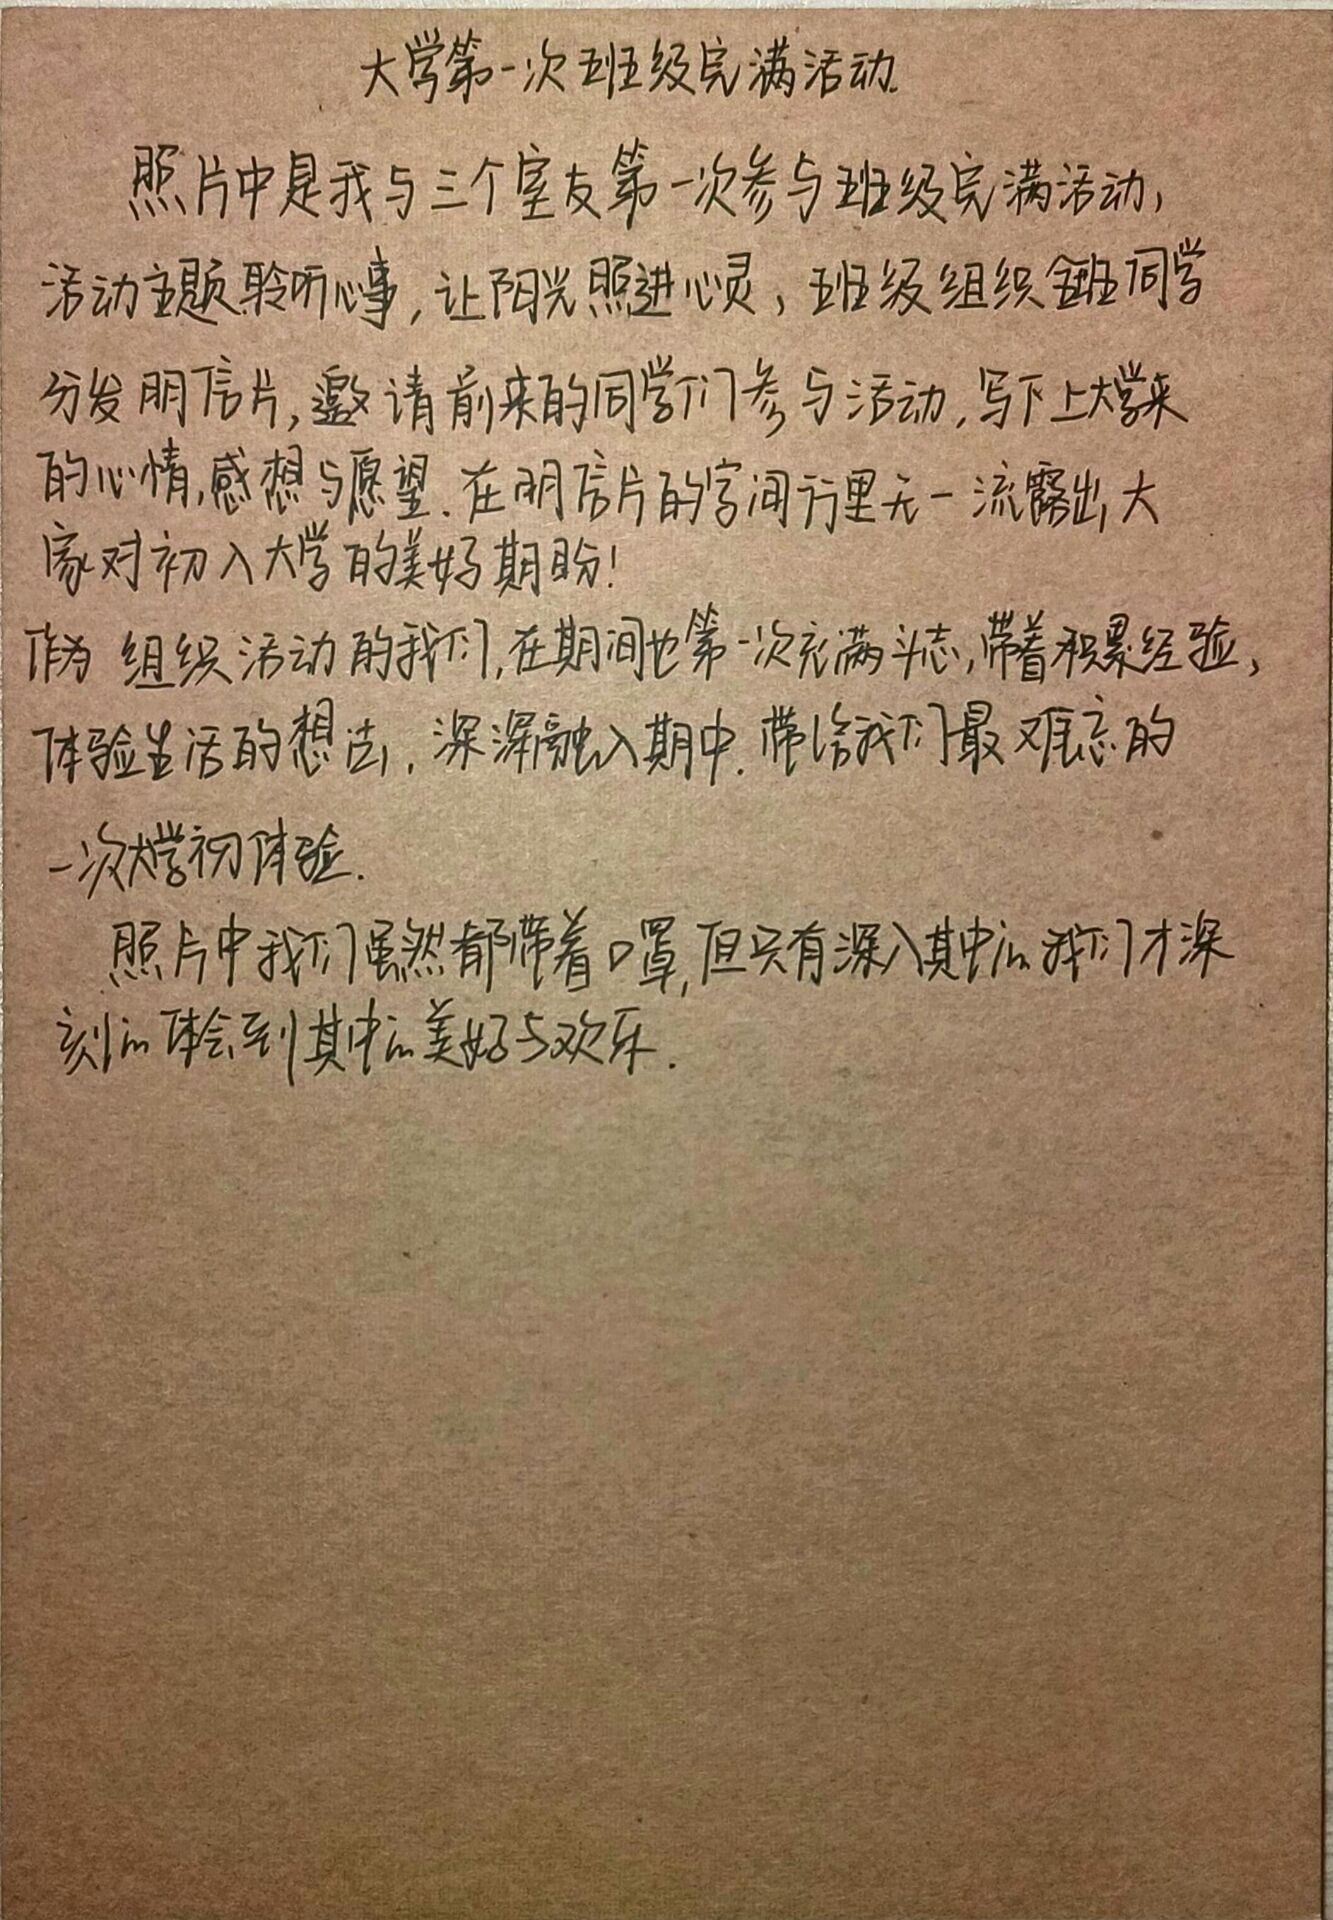 大学第一次班级完满活动.
照片中是我与三个室友第一次参与班级完满活动,
活动主题聆听心事,让阳光照进心灵,班级组织全班同学
分发明信片,邀请前来的同学们参与活动,写下上大学来
的心情,感想与愿望.在明信片的字间行里无一流露出大
家对初入大学的美好期盼!
作为组织活动的我们,在期间也第一次充满斗志,带着积累经验,
体验生活的想法,深深融入期中.带给我们最难忘的
一次大学初体验.
照片中我们虽然都带着口罩,但只有深入其中的我们才深
刻的体会到其中的美好与欢乐.